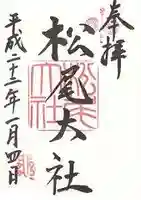 奉拝
松尾大社
平成二十二年一月四日